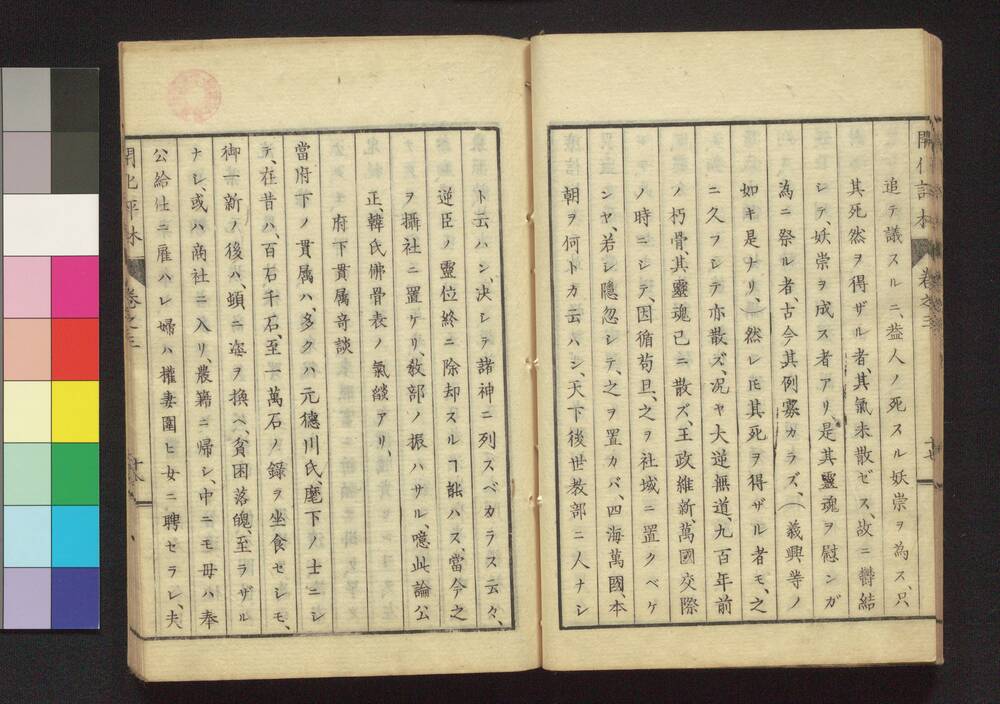 開化評林 卷之三
追テ議スルニ、蓋人ノ死スル妖崇ヲ為ス、只
其死然ヲ得ザル者、其氣未散ゼス、故ニ欝結
シテ、妖崇ヲ成ス者アリ、是其靈魂ヲ慰ンガ
為ニ祭ル者、古今其例寡カラズ、(義興等ノ
如キ是ナリ、)然レ𪜈其死ヲ得ザル者モ、之
ニ久フシテ亦散ズ、况ヤ大逆無道、九百年前
ノ朽骨、其靈魂已ニ散ズ、王政維新、萬國交際
ノ時ニシテ、因循苟旦、之ヲ社域ニ置クベケ
ンヤ、若シ隱忽シテ、之ヲ置カバ、四海萬國、本
朝ヲ何トカ云ハン、天下後世教部ニ人ナシ
ト云ハン、决シテ諸神ニ列スベカラス云々、
逆臣ノ靈位終ニ除却スルヿ能ハス、當今之
ヲ攝社ニ置ケリ、敎部ノ振ハサル、噫此論公
正、韓氏佛骨表ノ氣燄アリ、
府下貫属奇談
當府下ノ貫属ハ、多クハ元德川氏、麾下ノ士ニシ
テ、在昔ハ、百石千石、至一萬石ノ録ヲ坐食セシモ、
御一新ノ後ハ、頓ニ姿ヲ換ヘ、貧困落魄、至ラザル
ナシ、或ハ商社ニ入リ、農籍ニ帰シ、中ニモ母ハ奉
公給仕ニ雇ハレ婦ハ權妻圍ヒ女ニ聘セラレ、夫
開化評林 卷之三